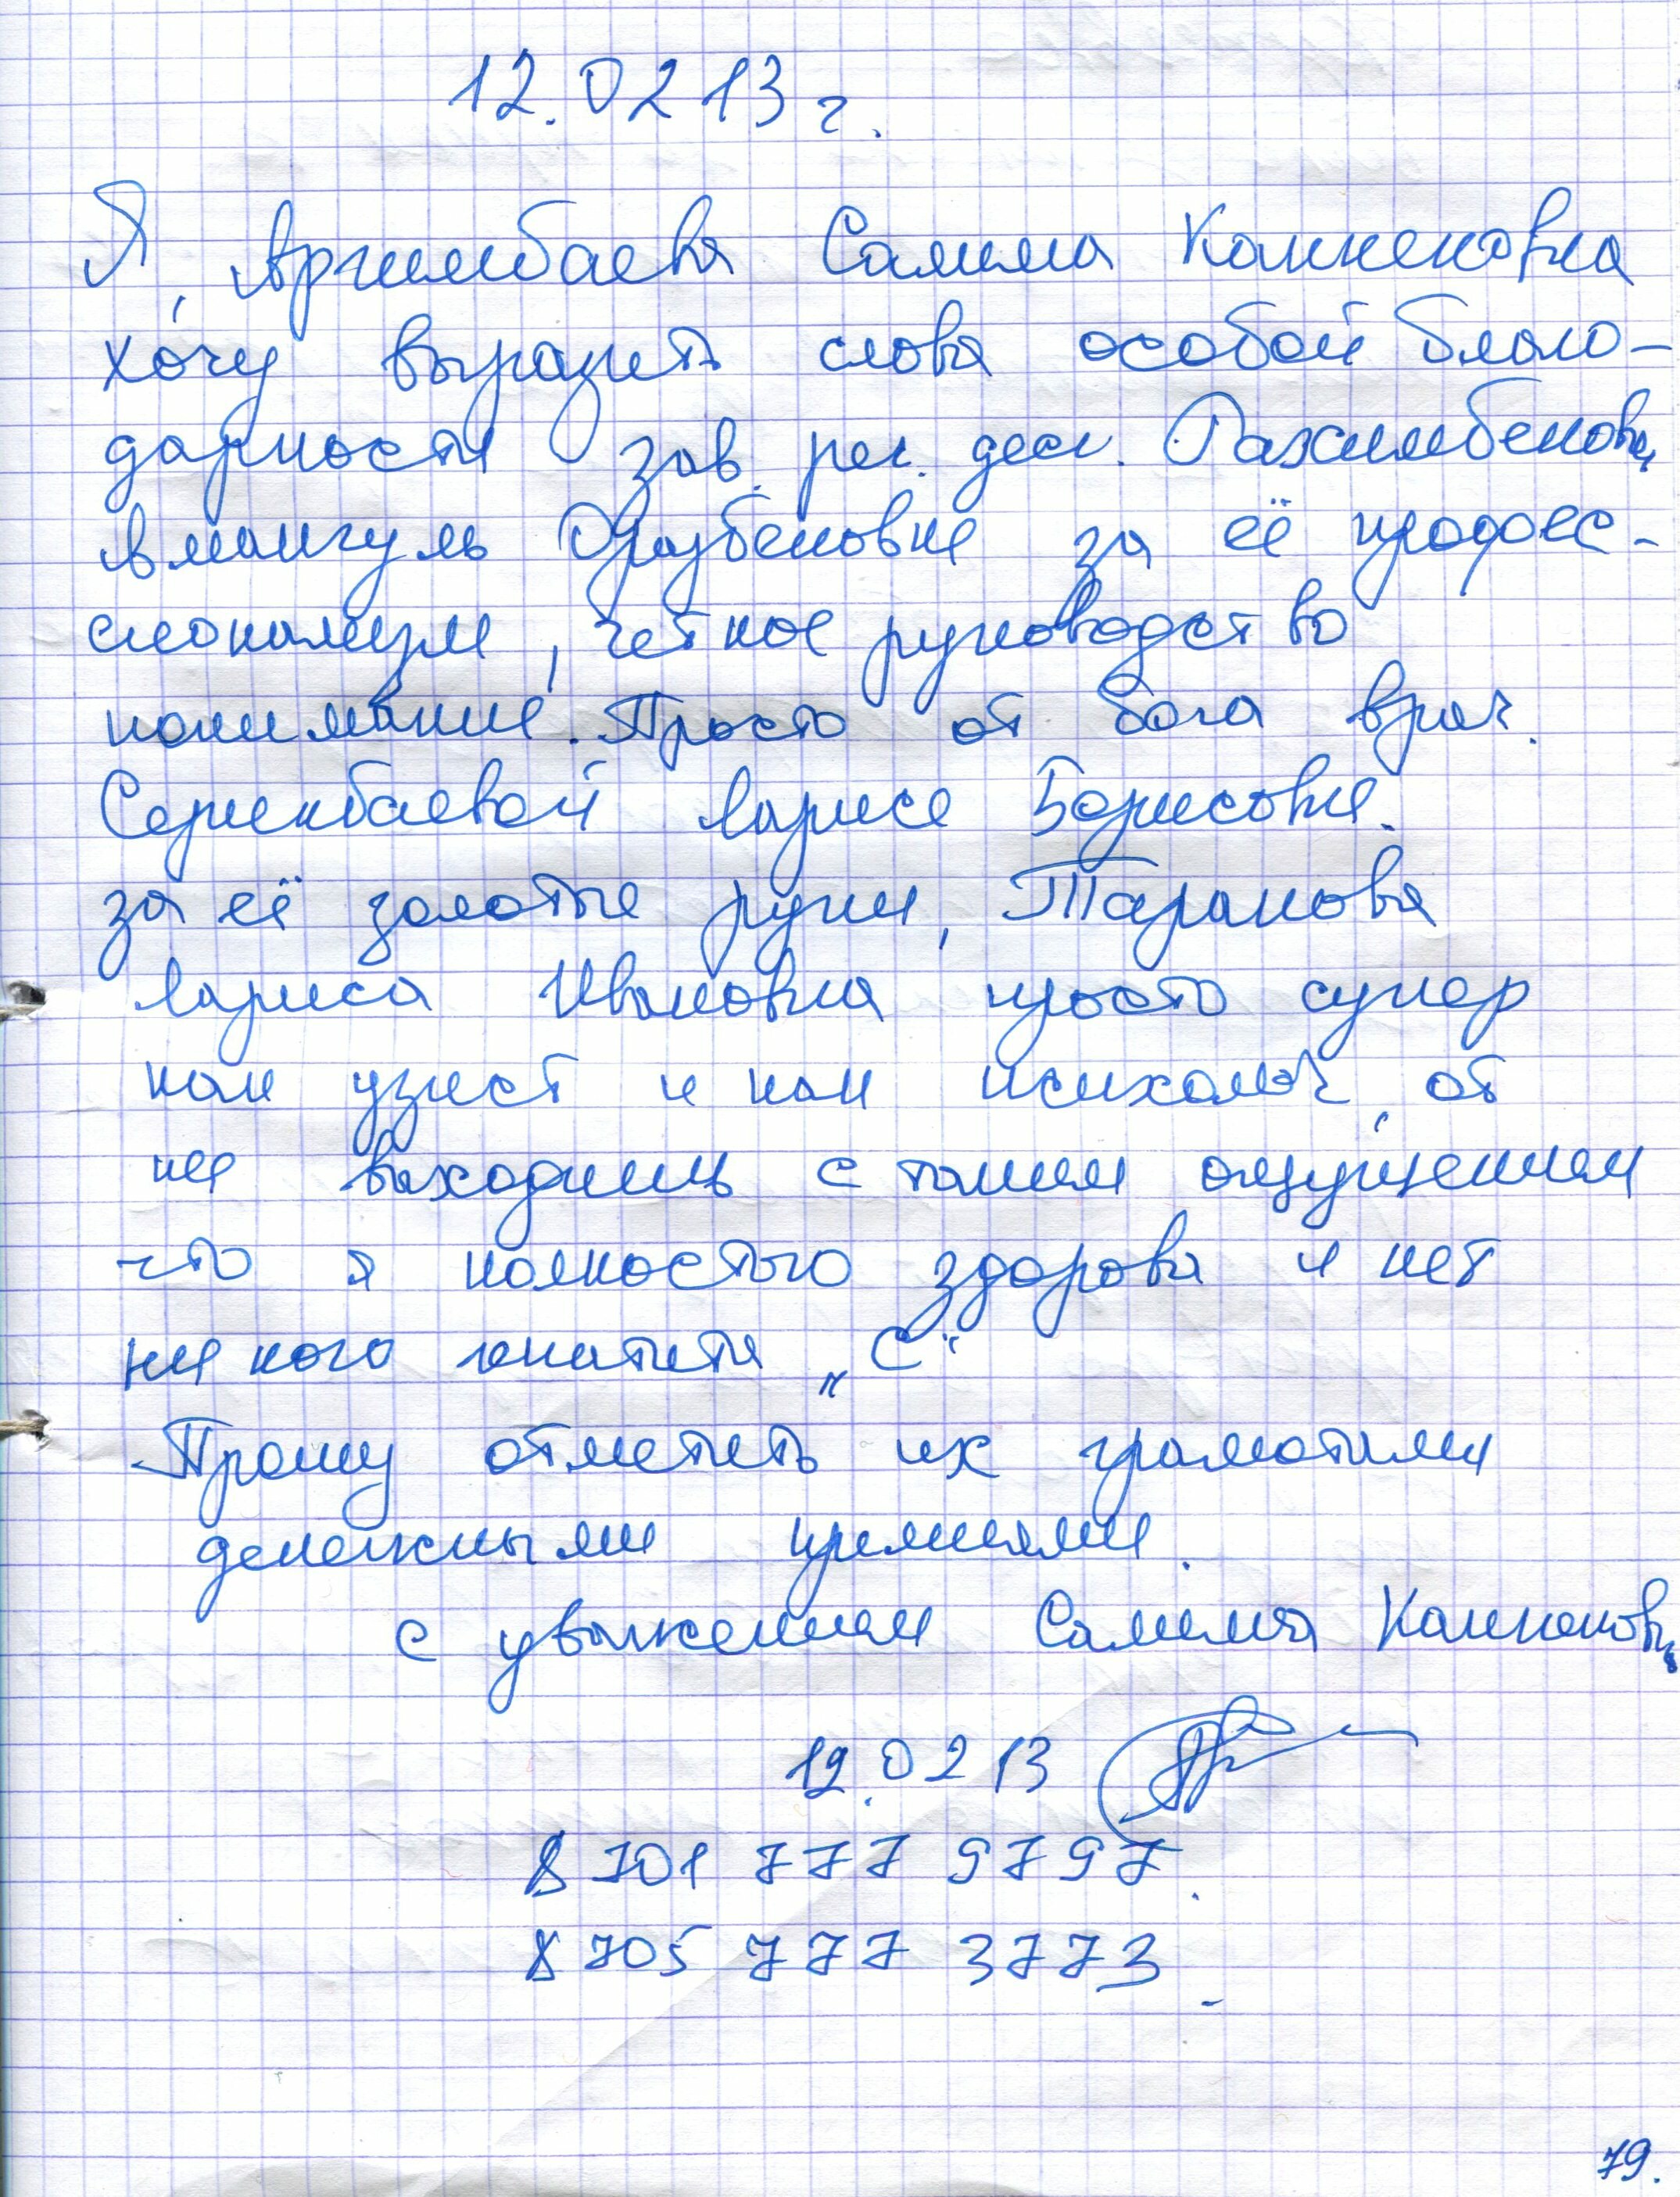 12.02 13 г.
Я, Аргимбаева Салима Канкеновна
хочу выразить слова особой благо-
дарности зав. рег. деск. Рахимбековой
Амангуль Оразбековне за её профес-
сионализм, чёткое руководство
понимание. Просто от бога врач.
Серикбаевой Ларисе Борисовне.
за её золотые руки, Таранова
Лариса Ивановна просто супер
как узист и как психолог, от
неё выходишь с таким ощущением
что я полностью здорова и нет
ни кого гепатита „С“
Прошу отметить их грамотами
денежными премиями.
с уважением Салима Канкеновна
12.02 13
8 701 777 9797.
8 705 777 3773
79.